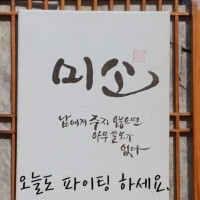 미소
남에게 주지 않으면
아무 쓸모가
없다
오늘도 파이팅 하세요.